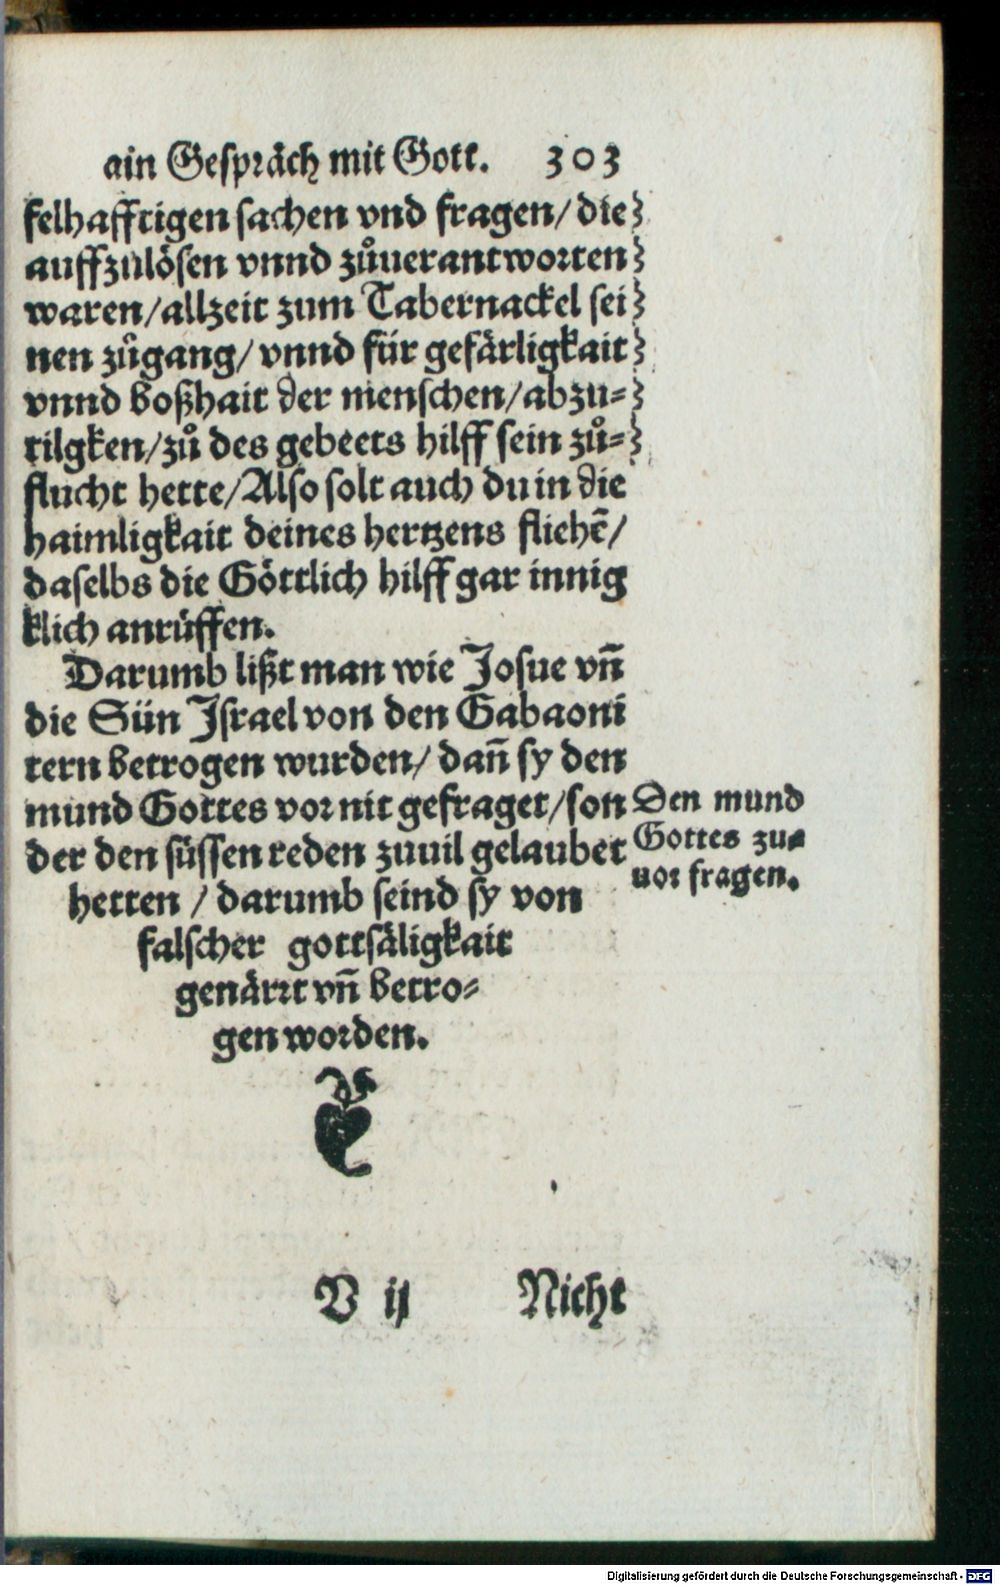 ain Gespräch mit Gott. 303
felhafftigen sachen vnd fragen/ die
auffzulösen vnnd zůuerantworten
waren/allzeit zum Tabernackel sei
nen zůgang/ vnnd für gefärligkait
vnnd boßhait der menschen/abzu-
tilgken/zů des gebeets hilff sein zů-
flucht hette/Also solt auch du in die
haimligkait deines hertzens fliehē/
daselbs die Göttlich hilff gar innig
klich anrüffen.
Darumb lißt man wie Josue vn̄
die Sün Israel von den Gabaoni
tern betrogen wurden/ dan̄ sy den
mund Gottes vor nit gefraget/son
der den süssen reden zuuil gelaubet
hetten / darumb seind sy von
falscher gottsäligkait
genärrt vn̄ betro-
gen worden.
Den mund
Gottes zu-
uor fragen.
V ij Nicht
Digitalisierung gefördert durch die Deutsche Forschungsgemeinschaft - DFG